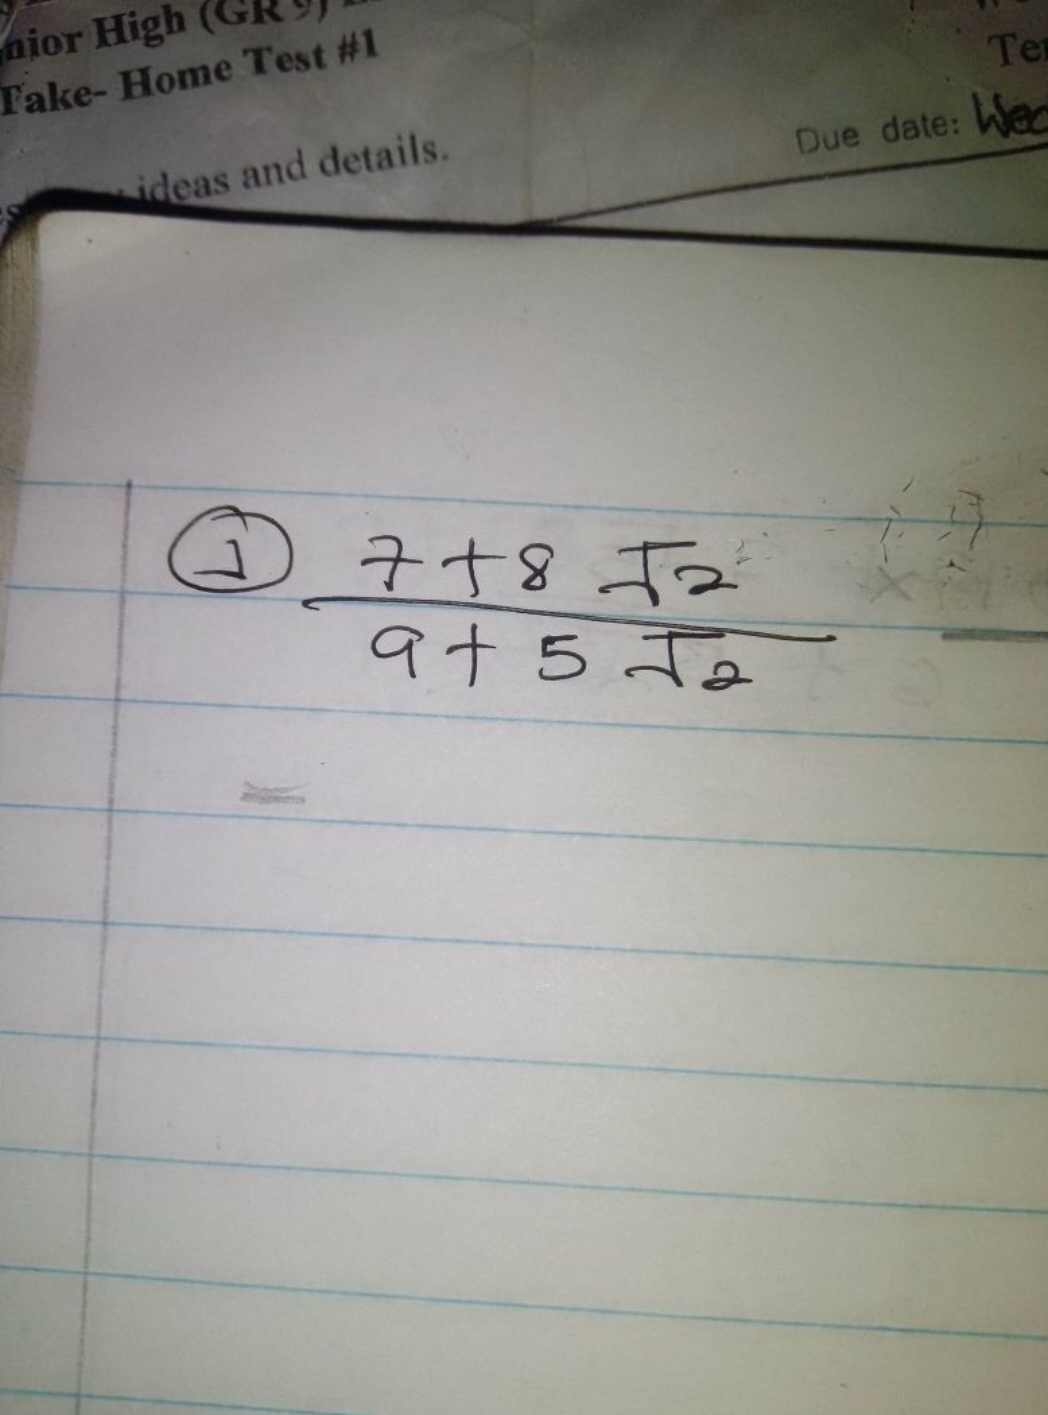 nior High (GR 9)
Take- Home Test #1
Due date: Wed
ideas and details.
① 7 + 8 √2
9 + 5 √2
=